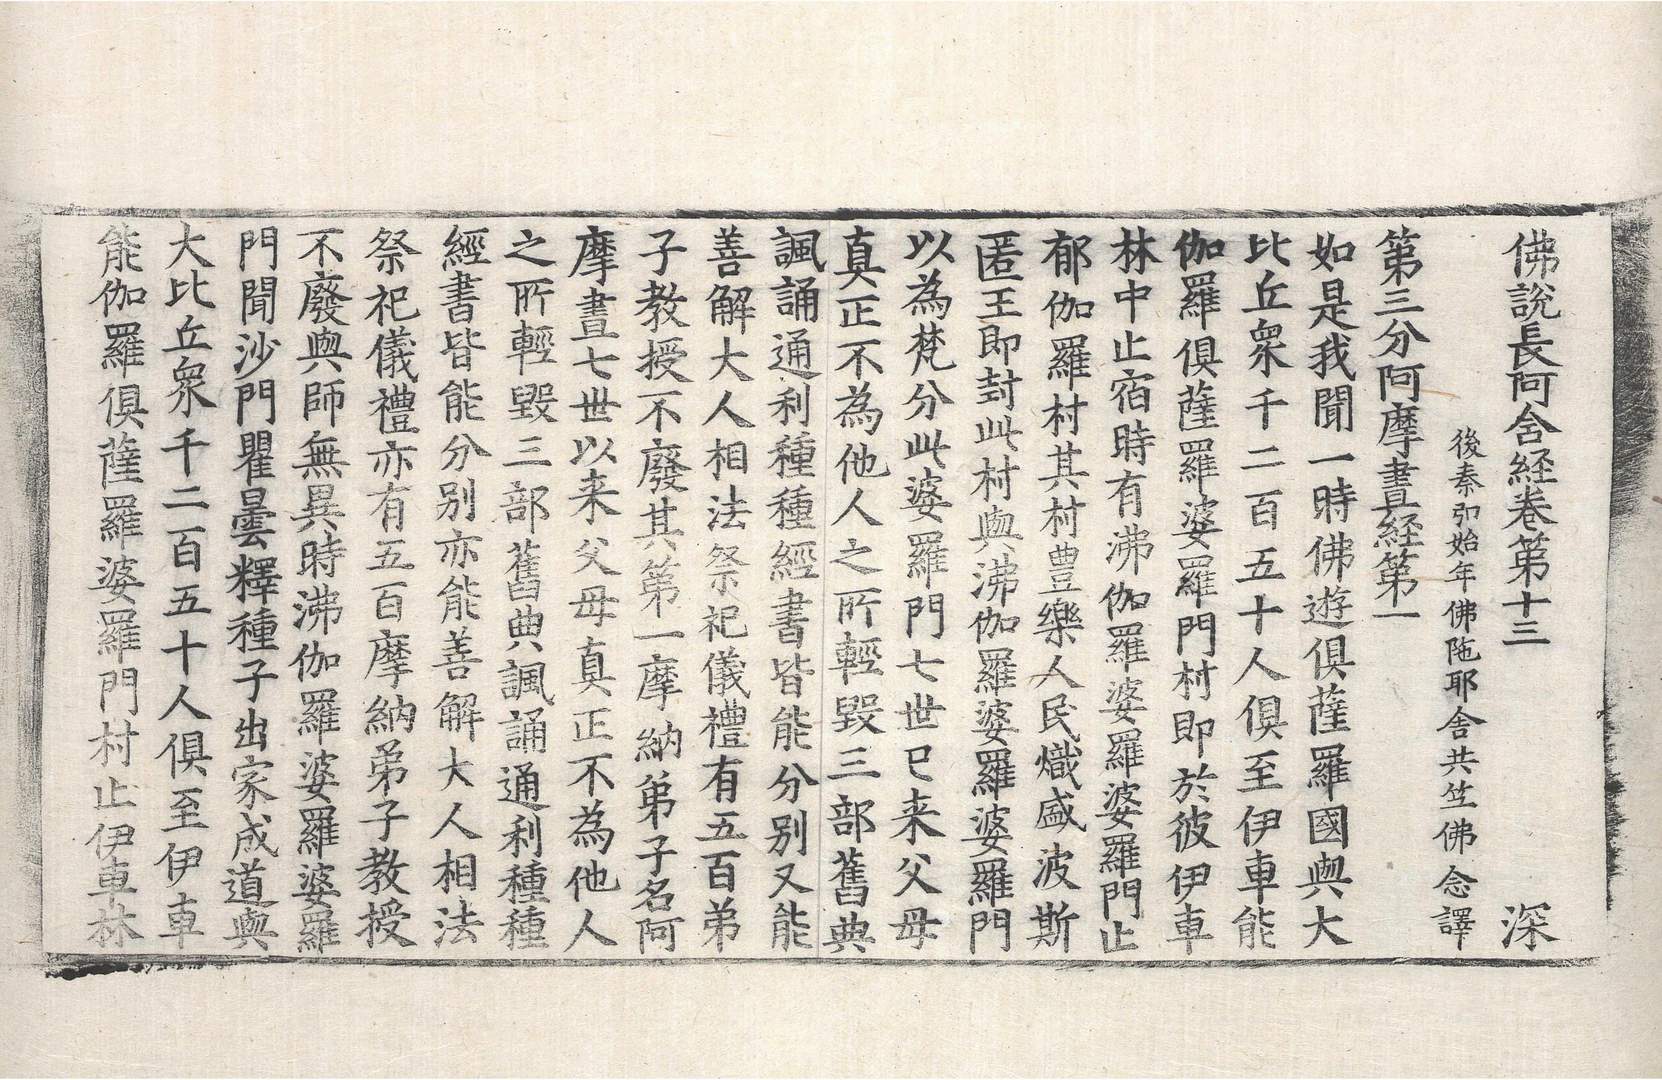 佛說長阿含経卷第十三 深
後秦弘始年佛陁耶舍共竺佛念譯
第三分阿摩晝経第一
如是我聞一時佛遊俱薩羅國與大
比丘衆千二百五十人俱至伊車能
伽羅俱薩羅婆羅門村即於彼伊車
林中止宿時有沸伽羅婆羅婆羅門止
郁伽羅村其村豊樂人民熾盛波斯
匿王即封此村與沸伽羅婆羅婆羅門
以為梵分此婆羅門七世已来父母
真正不為他人之所輕毀三部舊典
諷誦通利種種經書皆能分別又能
善解大人相法祭祀儀禮有五百弟
子教授不廢其第一摩納弟子名阿
摩晝七世以来父母真正不為他人
之所輕毀三部舊典諷誦通利種種
經書皆能分別亦能善解大人相法
祭祀儀禮亦有五百摩納弟子教授
不廢與師無異時沸伽羅婆羅婆羅
門聞沙門瞿曇釋種子出家成道與
大比丘衆千二百五十人俱至伊車
能伽羅俱薩羅婆羅門村止伊車林